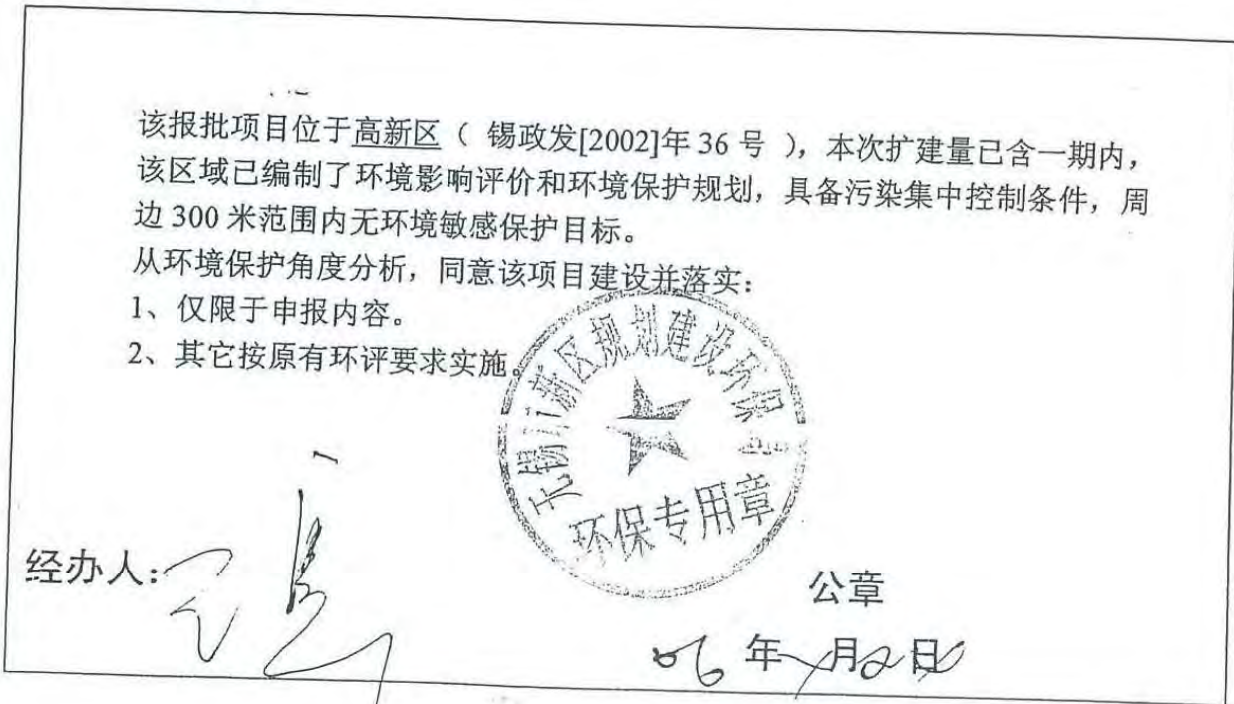 该报批项目位于高新区（ 锡政发[2002]年 36 号 ），本次扩建量已含一期内，
该区域已编制了环境影响评价和环境保护规划，具备污染集中控制条件，周
边 300 米范围内无环境敏感保护目标。
从环境保护角度分析，同意该项目建设并落实：
1、仅限于申报内容。
2、其它按原有环评要求实施。
无锡新区规划建设环保
环保专用章
经办人：
公章
06 年 月 日